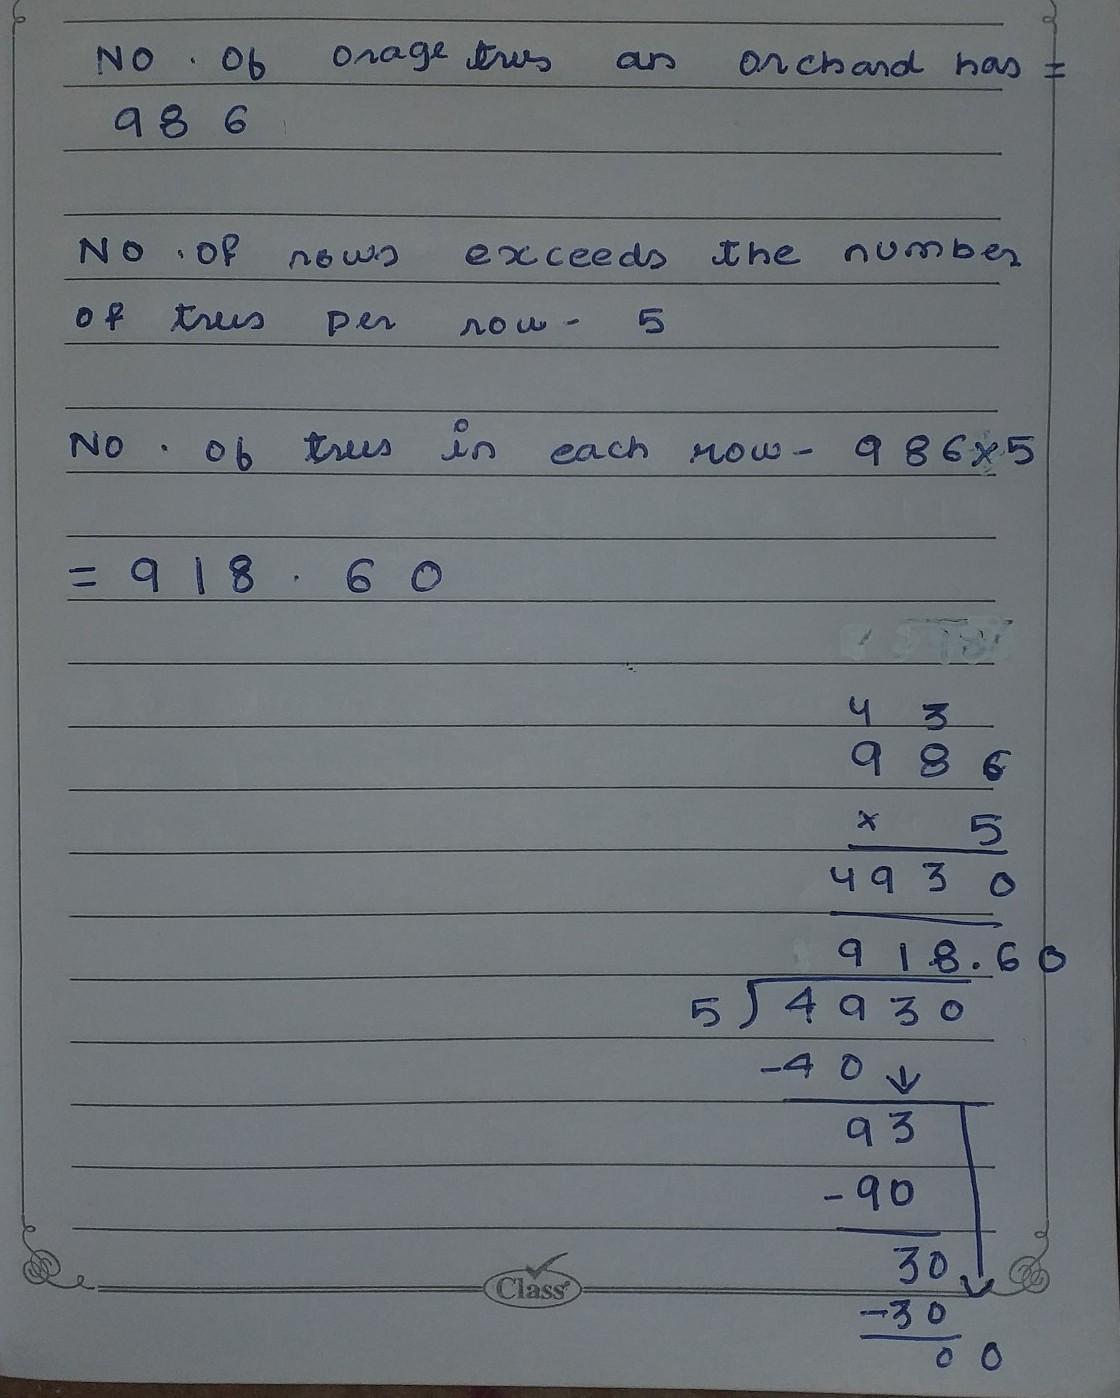 No. Of orage trees an orchard has =
986
No. Of rows exceeds the number
of trees per row - 5
No. of trees in each row - 986x5
= 918.60
4 3
986
x 5
4930
918.60
5)4930
-40↓
93
-90
30
-30
00
Class